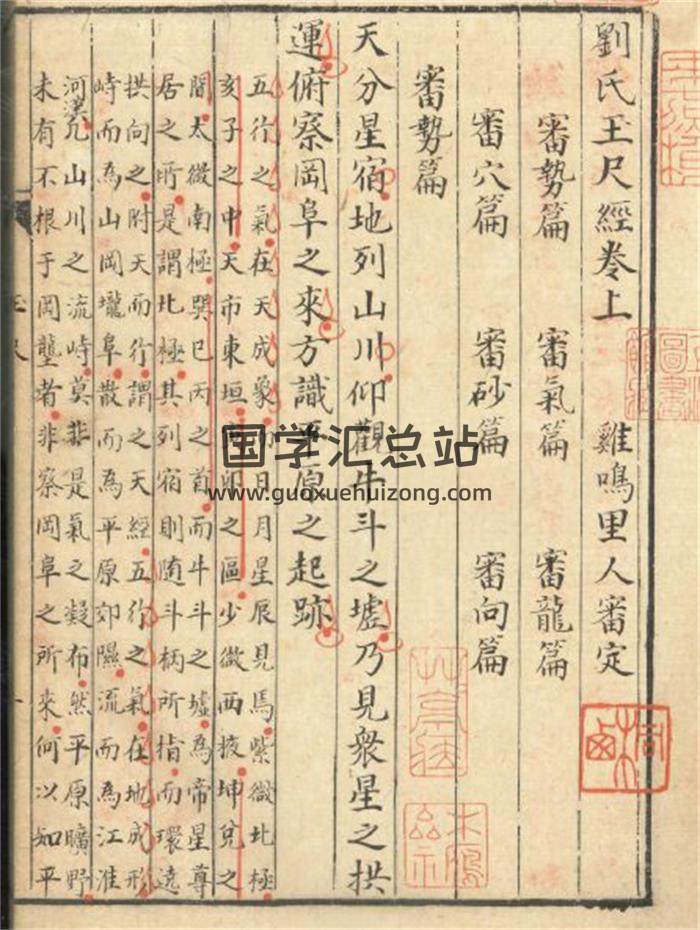 劉氏玉尺經卷上 雞鳴里人審定
審勢篇 審氣篇 審龍篇
審穴篇 審砂篇 審向篇
審勢篇
天分星宿地列山川仰觀牛斗之墟乃見衆星之拱
運俯察岡阜之來方識平原之起跡
五行之氣在天成象而日月星辰見焉紫微北極
亥子之中天市東垣卯之區少微西掖坤兌之
間太微南極巽巳丙之首而牛斗之墟為帝星尊
居之所是謂北極其列宿則随斗柄所指而環遶
拱向之附天而行謂之天經五行之氣在地成形
峙而為山岡壠阜散而為平原郊隰流而為江淮
河漢凡山川之流峙莫非是氣之凝布然平原曠野
未有不根于岡壟者非察岡阜之所來何以知平
国学汇总站
www.guoxuehuizong.com